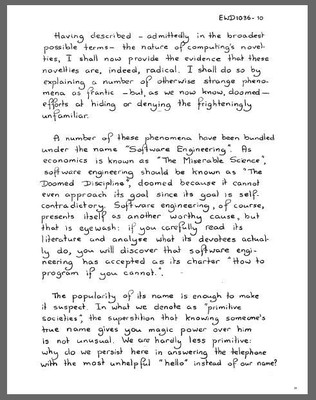 EWD1036-10
Having described - admittedly in the broadest
possible terms - the nature of computing's novel-
ties, I shall now provide the evidence that these
novelties are, indeed, radical. I shall do so by
explaining a number of otherwise strange pheno-
mena as frantic - but, as we now know, doomed -
efforts at hiding or denying the frighteningly
unfamiliar.
A number of these phenomena have been bundled
under the name "Software Engineering". As
economics is known as "The Miserable Science",
software engineering should be known as "The
Doomed Discipline", doomed because it cannot
even approach its goal since its goal is self-
contradictory. Software engineering, of course,
presents itself as another worthy cause, but
that is eyewash: if you carefully read its
literature and analyse what its devotees actual-
ly do, you will discover that software engi-
neering has accepted as its charter "How to
program if you cannot.".
The popularity of its name is enough to make
it suspect. In what we denote as "primitive
societies", the superstition that knowing someone's
true name gives you magic power over him
is not unusual. We are hardly less primitive:
why do we persist here in answering the telephone
with the most unhelpful "hello" instead of our name?